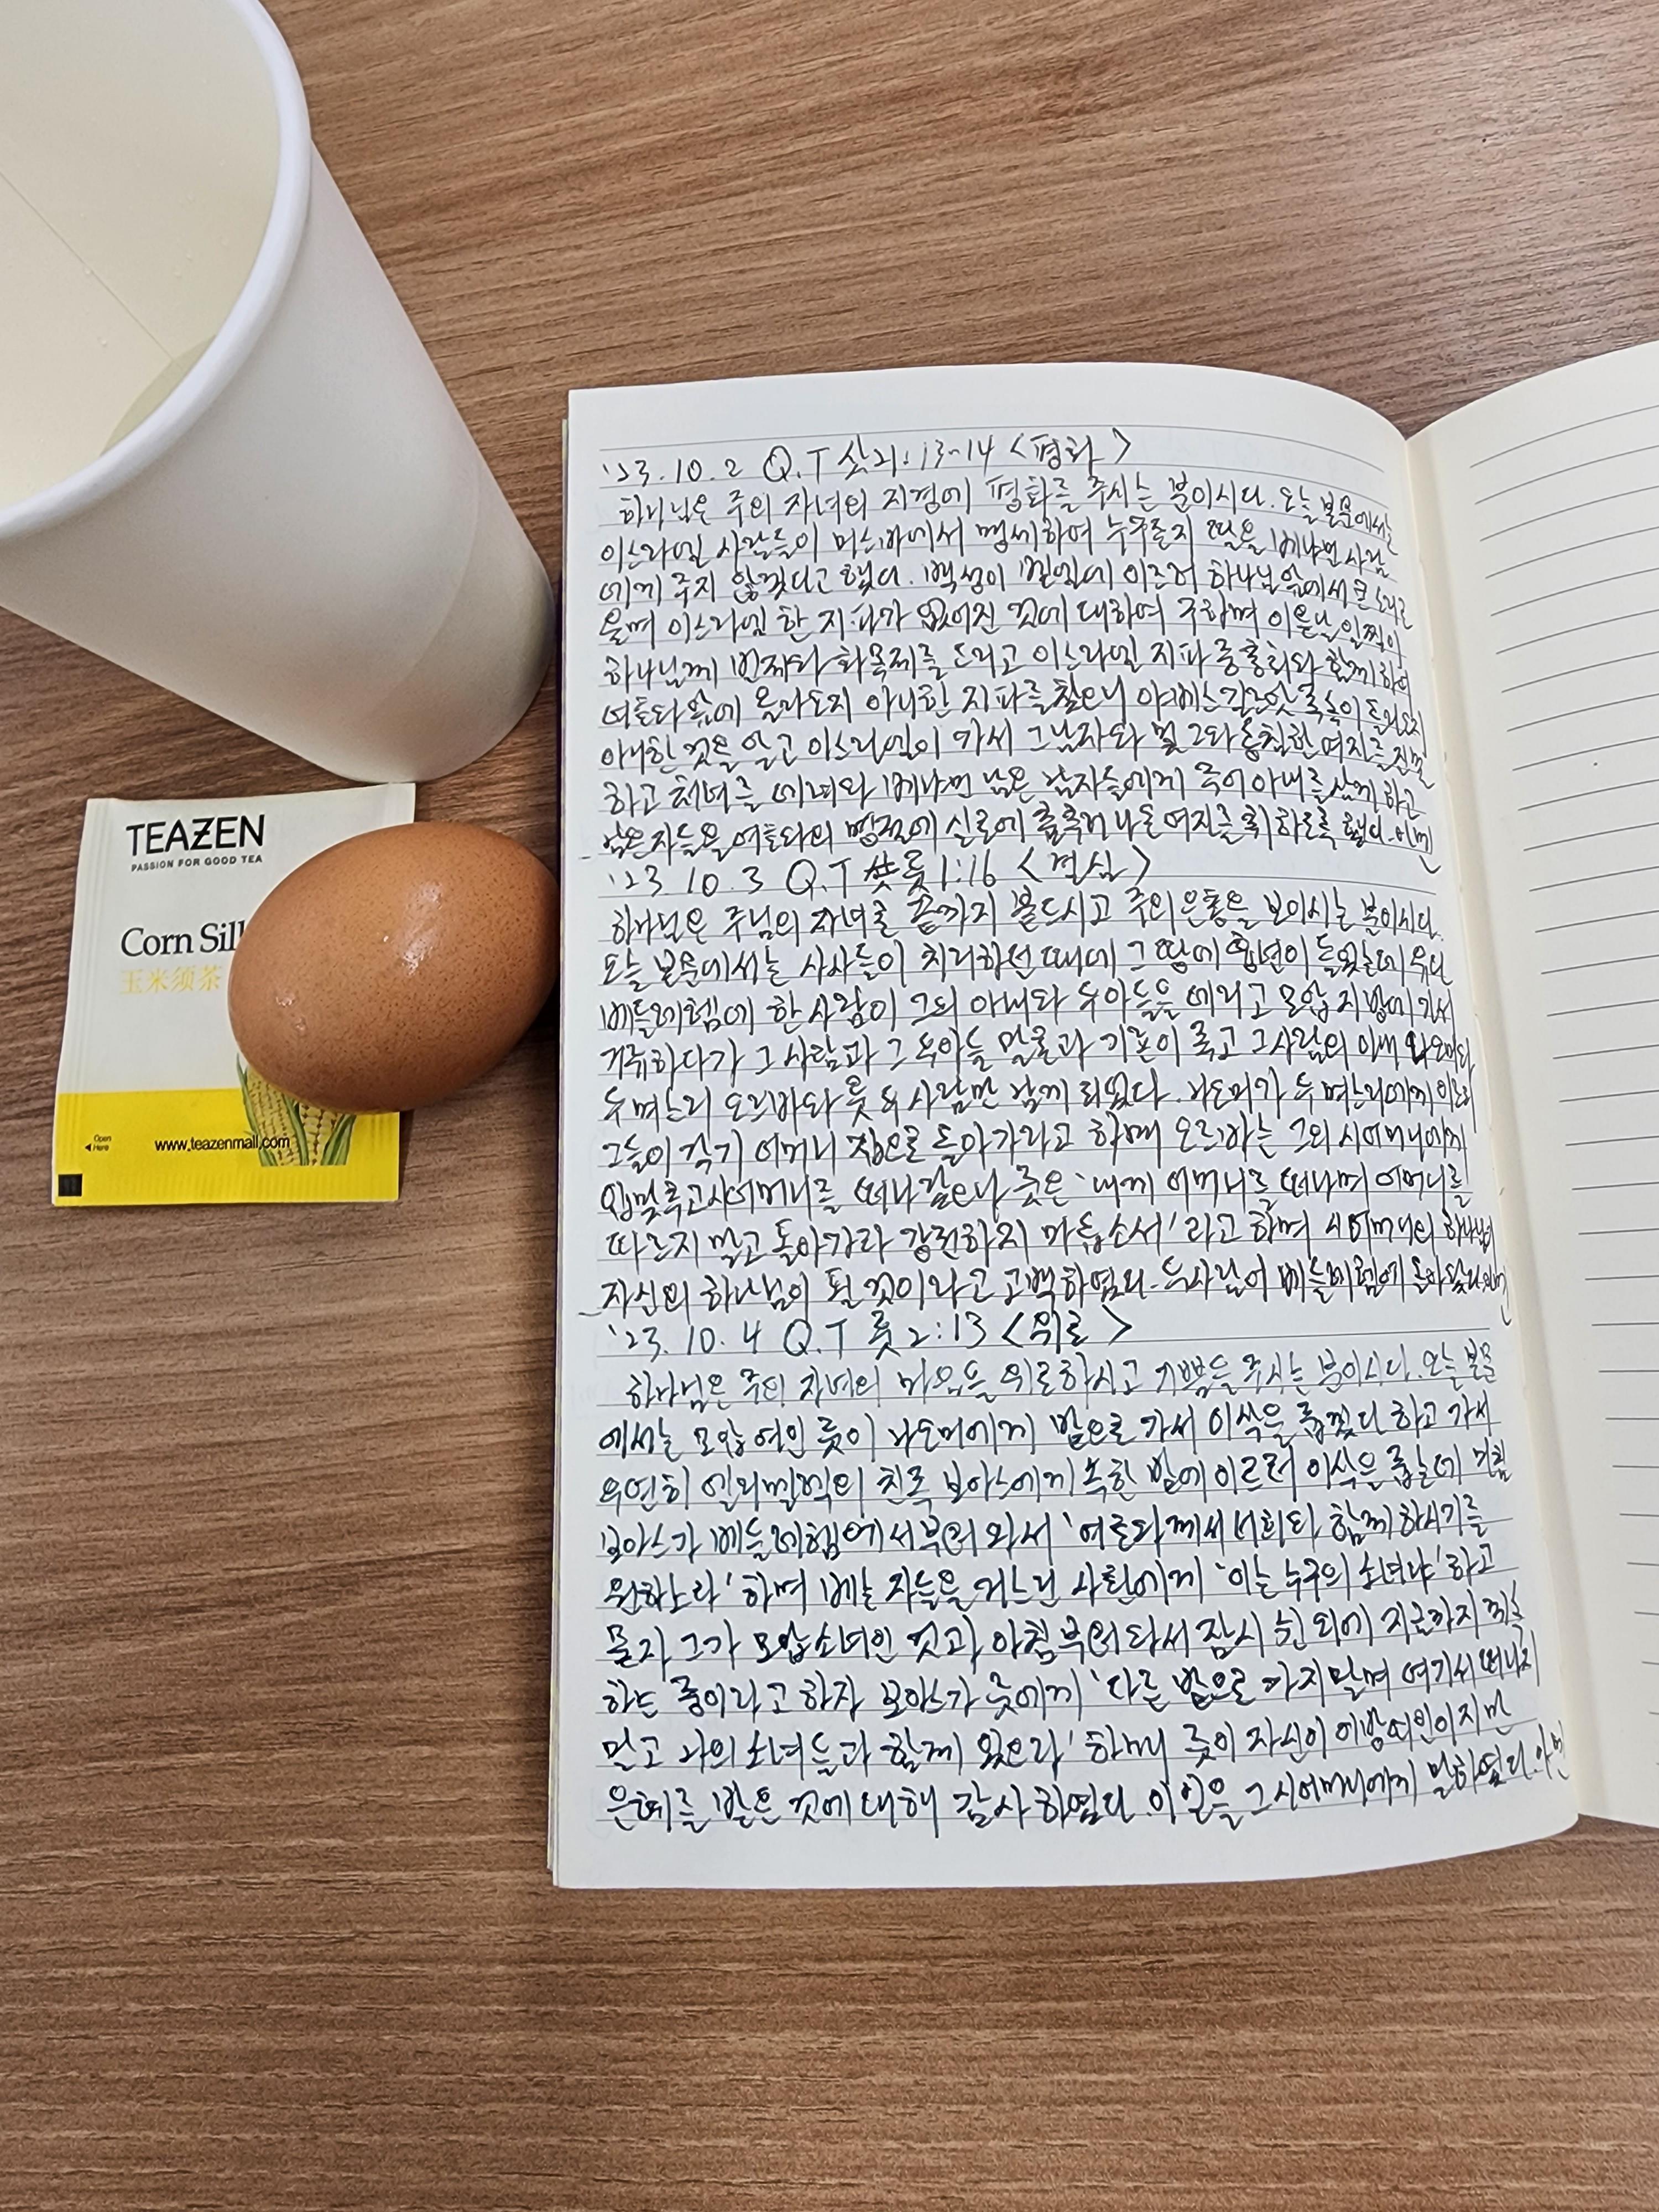 TEAZEN
PASSION FOR GOOD TEA
Corn Sil
玉米须茶
Open Here
www.teazenmall.com
'23. 10. 2 Q.T 삿21:13-14 <평화>
하나님은 주의 자녀의 지경에 평화를 주시는 분이시다. 오늘 본문에서는
이스라엘 사람들이 미스바에서 맹세하여 누구든지 딸을 베냐민 사람
에게 주지 않겠다고 했다. 백성이 벧엘에 이르러 하나님 앞에서 큰 소리로
울며 이스라엘 한 지파가 없어진 것에 대하여 구하며 이튿날 일찍이
하나님께 번제와 화목제를 드리고 이스라엘 지파 중 총회와 함께 하여
여호와 앞에 올라오지 아니한 지파를 찾으니 야베스 길르앗 족속이 올라오지
아니한 것을 알고 이스라엘이 가서 그 남자와 및 그와 동침한 여자를 진멸
하고 처녀를 데려와 베냐민 남은 남자들에게 주어 아내를 삼게 하고
남은 자들은 여호와의 명절에 실로에 춤추러 나온 여자를 취하도록 했다. 아멘
'23. 10. 3 Q.T 룻1:16 <결심>
하나님은 주님의 자녀를 끝까지 붙드시고 주의 은총을 보이시는 분이시다.
오늘 본문에서는 사사들이 치리하던 때에 그 땅에 흉년이 들었는데 유다
베들레헴에 한 사람이 그의 아내와 두 아들을 데리고 모압 지방에 가서
거류하다가 그 사람과 그 두 아들 말론과 기룐이 죽고 그 사람의 아내 나오미와
두 며느리 오르바와 룻 세 사람만 남게 되었다. 나오미가 두 며느리에게 이르되
그들이 각기 어머니 집으로 돌아가라고 하매 오르바는 그의 시어머니에게
입맞추고 시어머니를 떠나갔으나 룻은 '내게 어머니를 떠나며 어머니를
따르지 말고 돌아가라 강권하지 마옵소서' 라고 하며 시어머니의 하나님이
자신의 하나님이 될 것이라고 고백하였다. 두 사람이 베들레헴에 돌아왔다. 아멘
'23. 10. 4 Q.T 룻 2:13 <위로>
하나님은 주의 자녀의 마음을 위로하시고 기쁨을 주시는 분이시다. 오늘 본문
에서는 모압 여인 룻이 나오미에게 밭으로 가서 이삭을 줍겠다 하고 가서
우연히 엘리멜렉의 친족 보아스에게 속한 밭에 이르러 이삭을 줍는데 마침
보아스가 베들레헴에서부터 와서 '여호와께서 너희와 함께 하시기를
원하노라' 하며 베는 자들을 거느린 사환에게 '이는 누구의 소녀냐' 하고
묻자 그가 모압 소녀인 것과 아침부터 와서 잠시 쉰 외에 지금까지 계속
하는 중이라고 하자 보아스가 룻에게 '다른 밭으로 가지 말며 여기서 떠나지
말고 나의 소녀들과 함께 있으라' 하매 룻이 자신이 이방여인이지만
은혜를 받은 것에 대해 감사하였다. 이 일을 그 시어머니에게 말하였다. 아멘